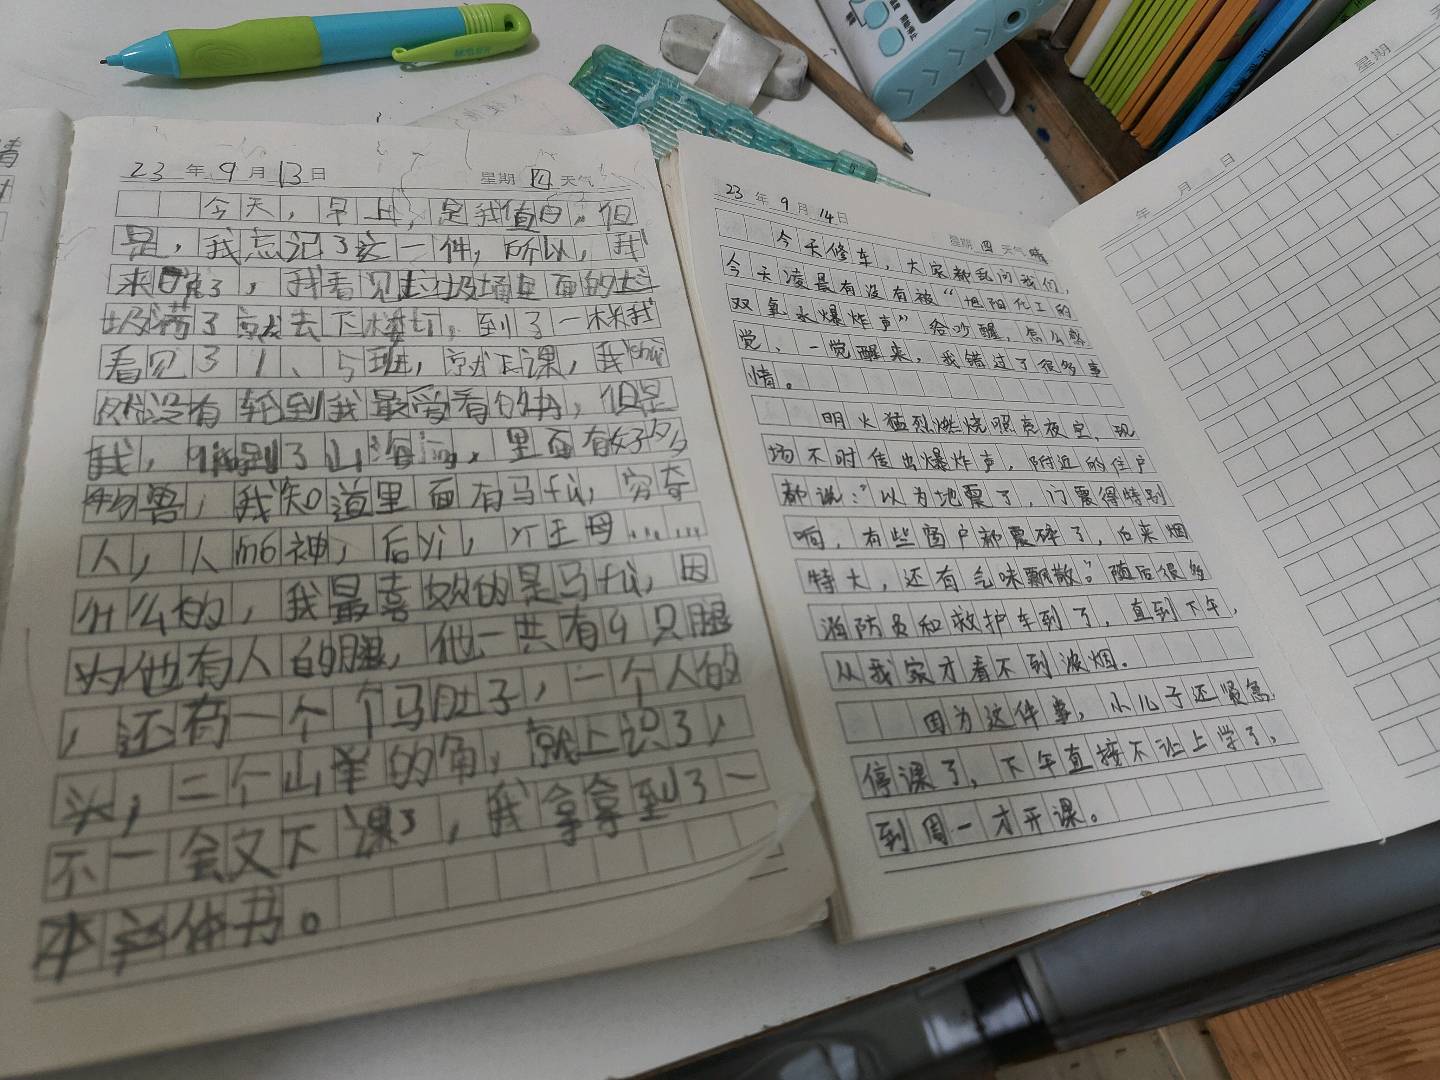 23 年 9 月 13 日 星期 四 天气
今天，早上，是我值日。但
是，我忘记了这一件，所以，我
来 了，我看见垃圾场里面的垃
圾满了就去下楼打，到了一楼我
看见了1、5班，就下课，我shui
然没有轮到我最爱看的书，但是
我， 到了山海 ，里面有好多
兽，我知道里面有马fù，穷奇
人，人 神，后yì， 王母……
什么的，我最喜欢的是马fù，因
为他有人的腿，他一共有9只腿
，还有一个个马肚子，一个人的
头，二个山羊的角，就上识了，
不一会又下课了，我拿拿到了一
本 体书。
23 年 9 月 14 日 星期 四 天气 晴
今天修车，大家都乱问我们，
今天凌晨有没有被“旭阳化工的
双氧水爆炸声”给吵醒，怎么
觉，一觉醒来，我错过了很多事
情。
明火猛烈燃烧照亮夜空，现
场不时传出爆炸声，附近的住户
都说：“以为地震了，门震得特别
响，有些窗户都震碎了，后来烟
特大，还有气味飘散。”随后很多
消防员和救护车到了，直到下午，
从我家才看不到浓烟。
因为这件事，小儿子还 急
停课了，下午直接不让上学了，
到周一才开课。
年 月 日
星期